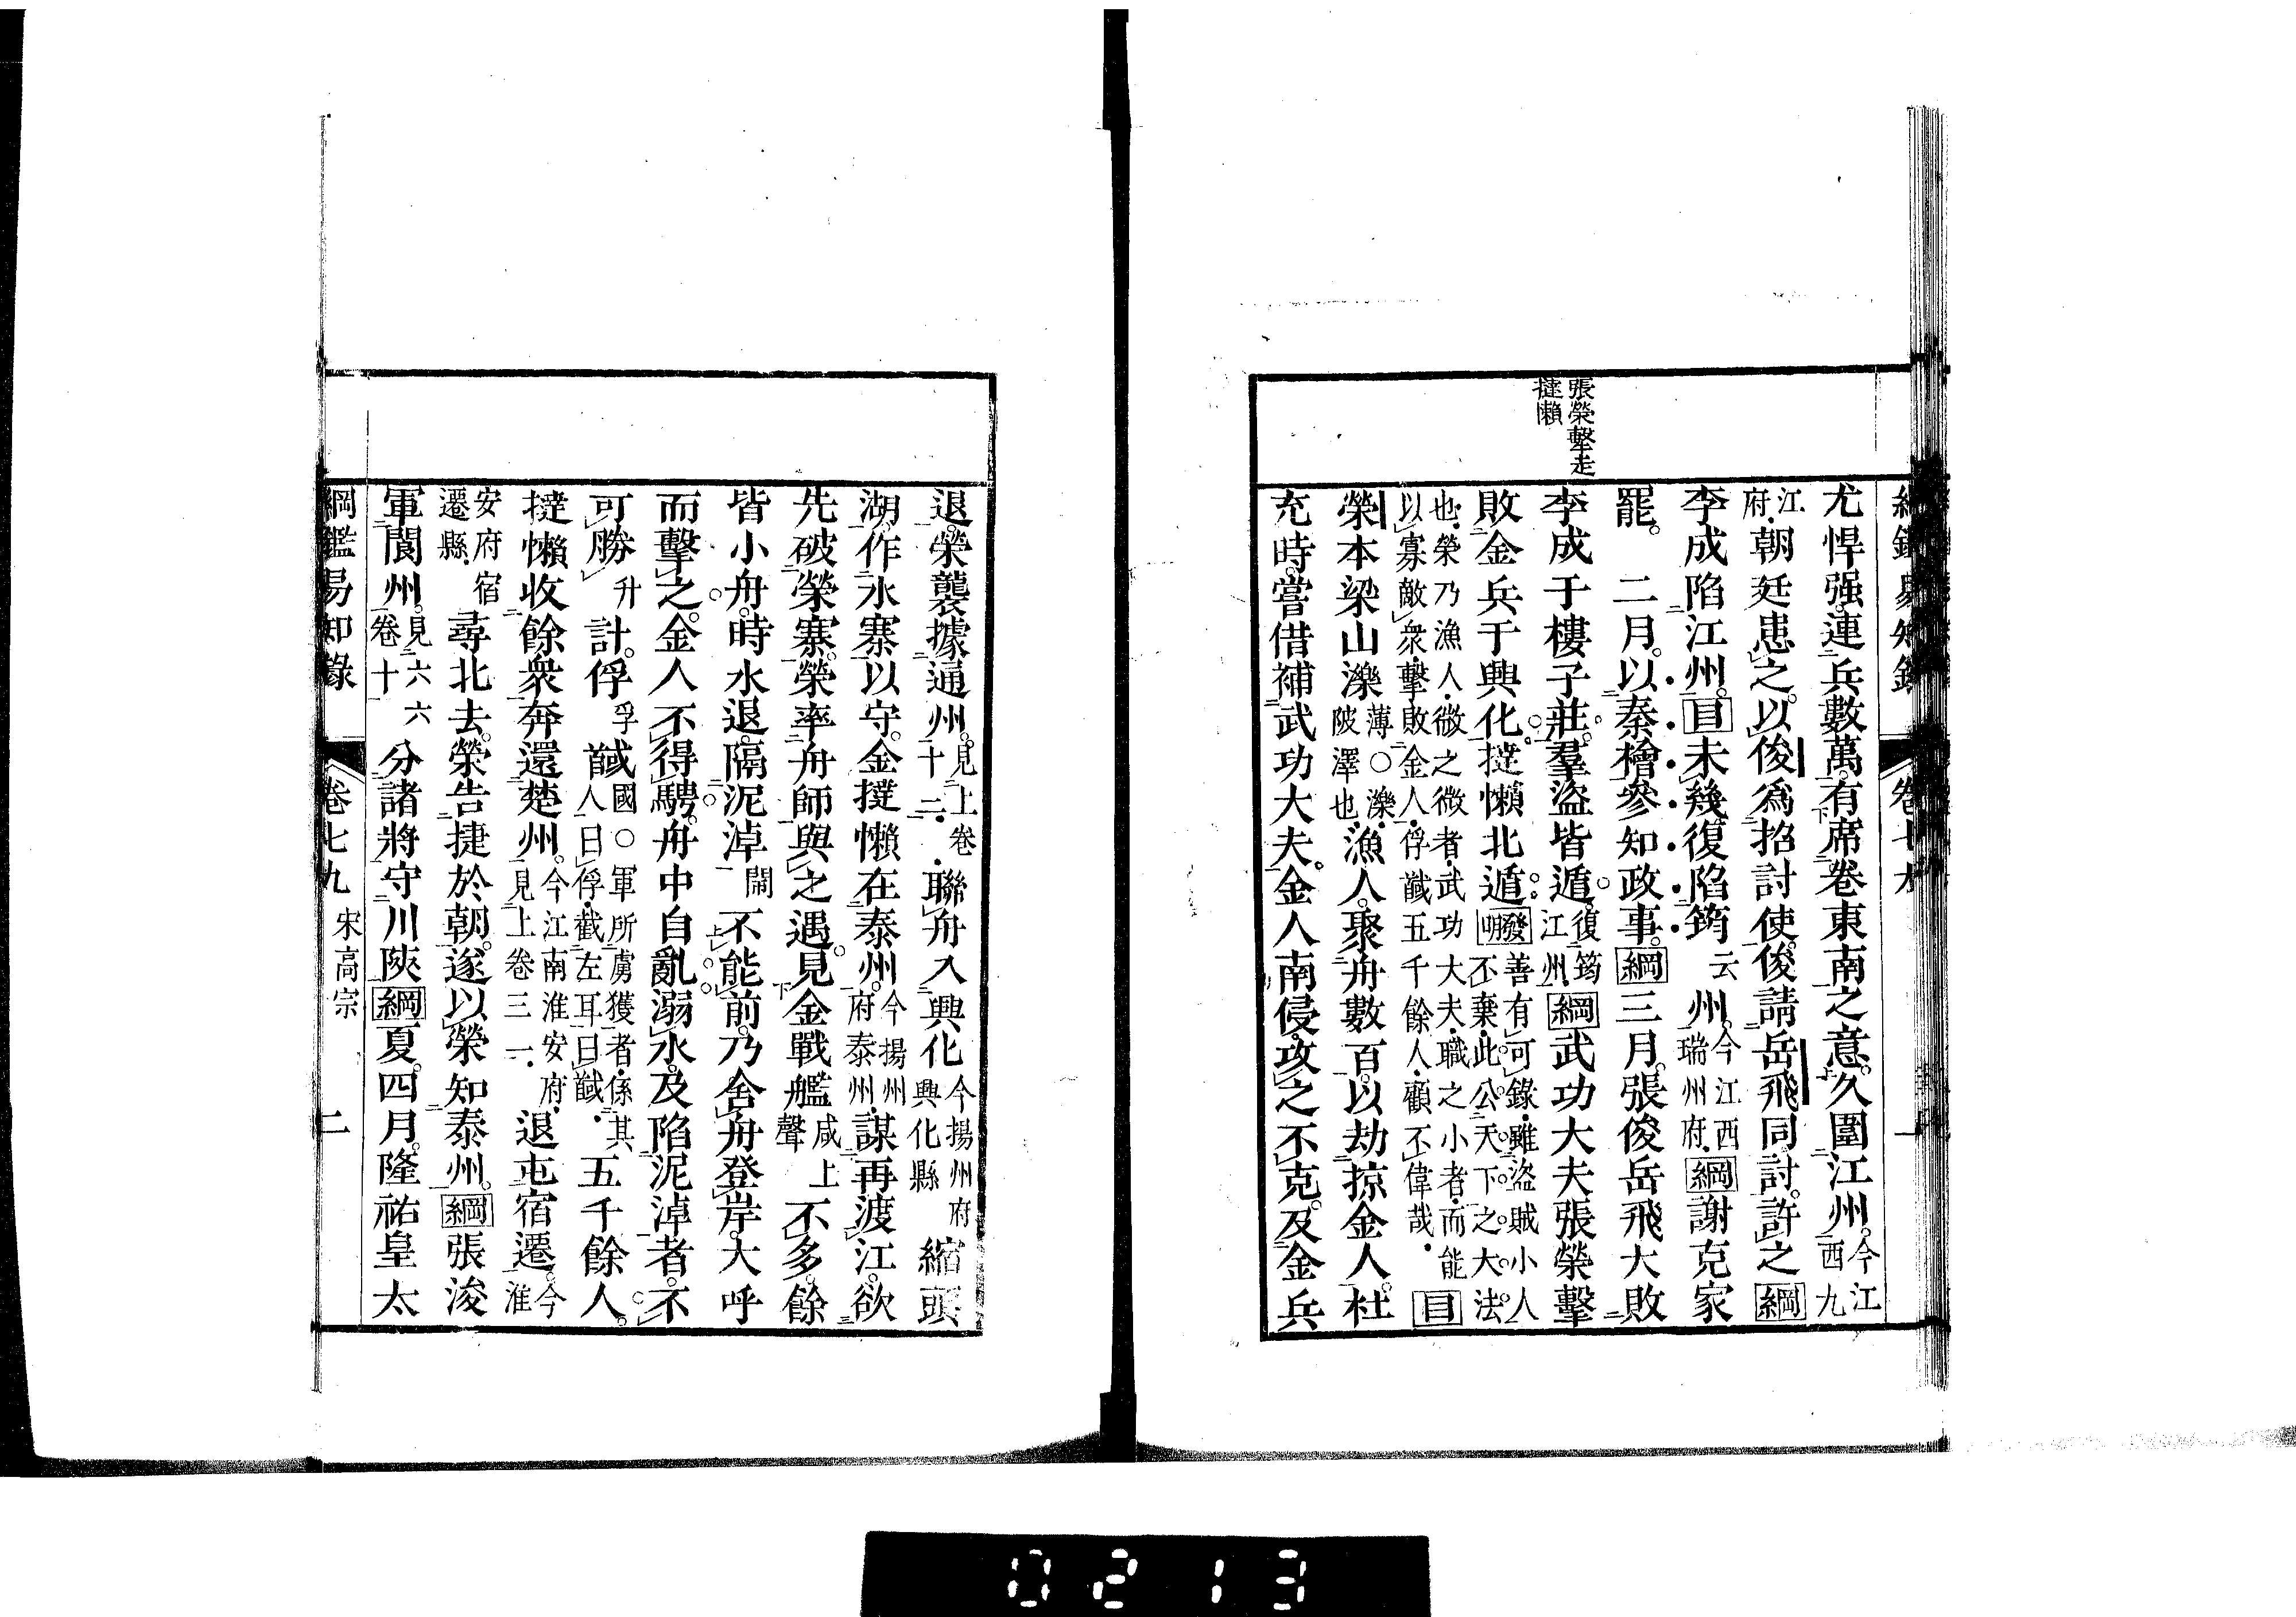 綱鑑易知錄 卷七九 一
張榮擊走
撻懶
尤悍强。連兵數萬。有席卷東南之意。久圍江州。今江西九
江府。朝廷患之。以俊爲招討使。俊請岳飛同討。許之綱
李成陷江州。目未幾復陷筠云州。今江西瑞州府。綱謝克家
罷。二月。以秦檜參知政事。綱三月。張俊岳飛大敗
李成于樓子莊。羣盜皆遁。復筠江州。綱武功大夫張榮擊
敗金兵于興化。撻懶北遁。發明善有可錄。雖盜賊小人不棄。此公天下之大法
也。榮乃漁人。微之微者。武功大夫。職之小者。而能以寡敵衆。擊敗金人。俘馘五千餘人。顧不偉哉。目
榮本梁山濼薄○濼。陂澤也。漁人。聚舟數百。以劫掠金人。杜
充時。嘗借補武功大夫。金人南侵。攻之不克。及金兵
退。榮襲據通州。見上卷十二。聯舟入興化今揚州府興化縣縮頭
湖。作水寨以守。金撻懶在泰州。今揚州府泰州。謀再渡江。欲
先破榮寨。榮率舟師與之遇。見金戰艦咸上聲不多。餘
皆小舟。時水退。隔泥淖閙不能前。乃舍舟登岸。大呼
而擊之。金人不得騁。舟中自亂。溺水及陷泥淖者。不
可勝升計。俘孚馘國○軍所虜獲者。係其人曰俘。截左耳曰馘。五千餘人。
撻懶收餘衆奔還楚州。今江南淮安府。見上卷三一。退屯宿遷。今淮
安府宿遷縣。尋北去。榮告捷於朝。遂以榮知泰州。綱張浚
軍閬州。見六六卷十一分諸將守川陝綱夏。四月。隆祐皇太
綱鑑易知錄 卷七九 宋高宗 二
0213